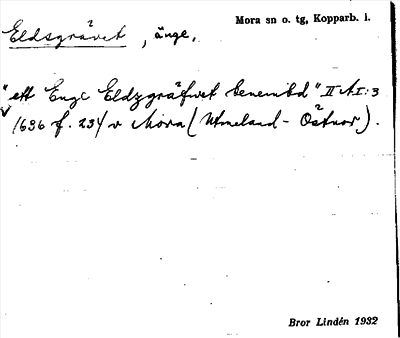 Eldsgråvet, änge.
Mora sn o. tg, Kopparb. l.
"ett Enge Eldzgråfwet benembd" II A I:3
1636 f. 234 v Mora (Utmeland - Östnor).
Bror Lindén 1932